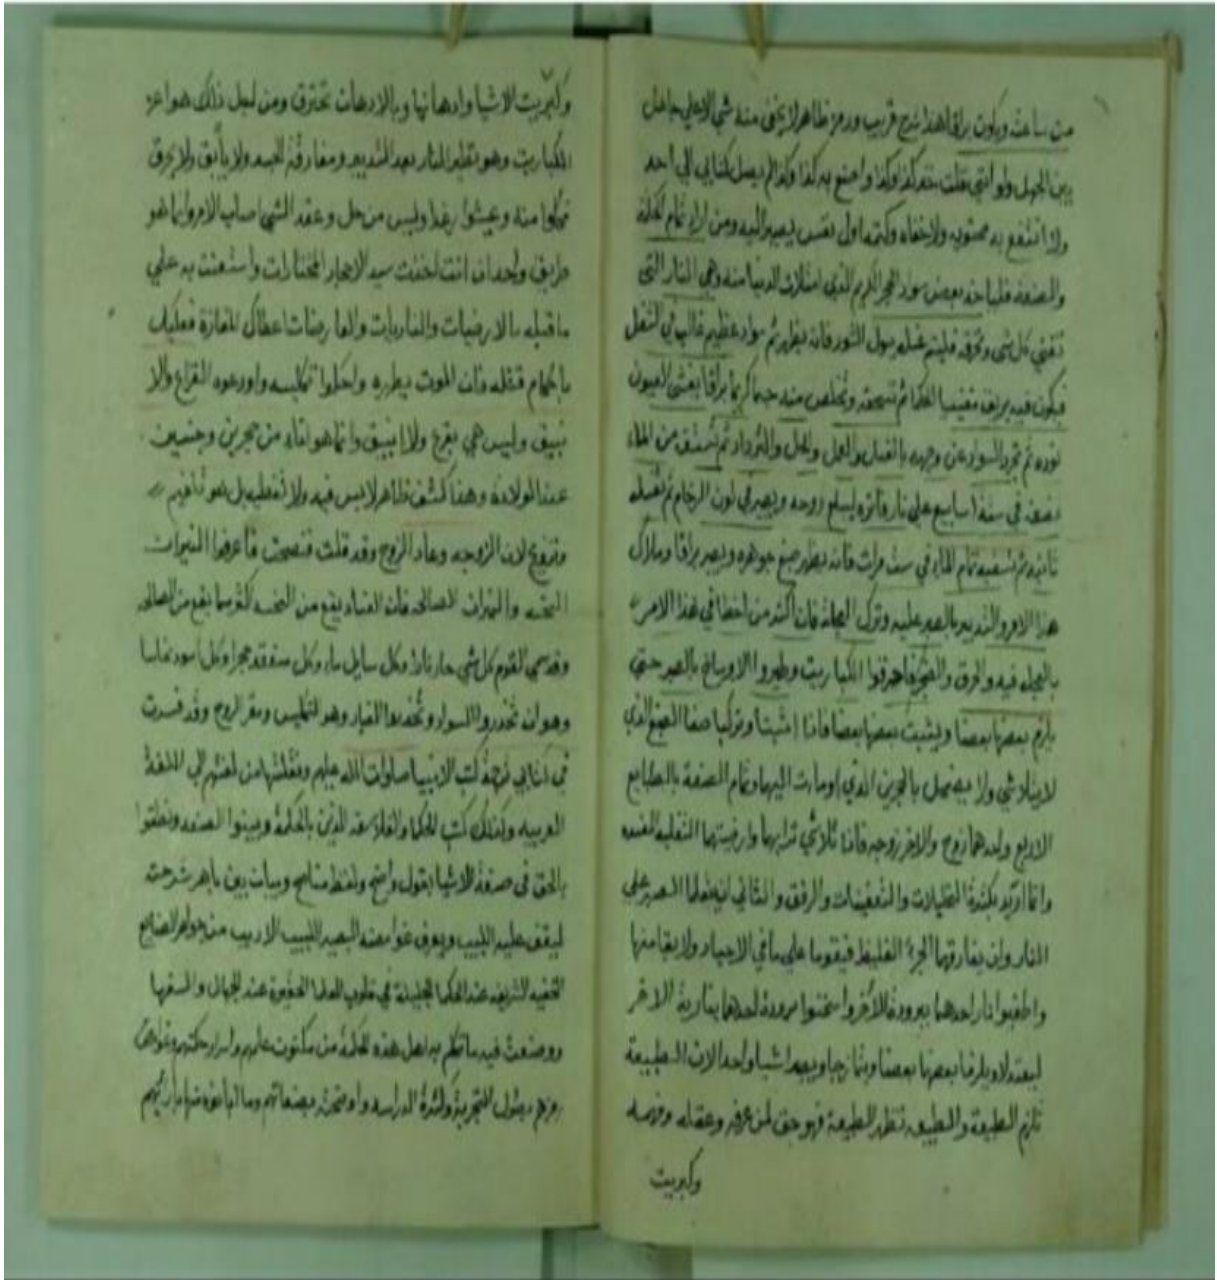 من ساعته ويكون براقا هذا شرح قريب ورمز ظاهر لا يخفى منه شي الا علي جاهل
بين الجهل ولو انني قلت خذ كذا وكذا واصنع به كذا وكذا لم يصل كتابي الي احد
ولا انتفع به ولاخفاه وكتمه اول نفس يصير اليه ومن اراد تمام الحكمة
والصنعة فلياخذ بعض سواد الحجر الكريم الذي امتلات الدنيا منه وهي النار التي
تفني كل شي وتحرقه فليتم غسله ببول الثور فانه يظهر ثم سواد عظيم غالب في الثفل
فيكون فيه بريق الحكما ثم تسحقه وتخلص منه جسما كريما براقا يغشى العيون
نوره ثم تجرد السواد عن وجهه بالغسل والحل والترداد ثم تسقي من الماء
نصفه في ستة اسابيع علي نار فاترة ليسلخ روحه ويصير في لون الرخام ثم تغسله
ثانية ثم تسقيه تمام الماء في ست مرات فانه يظهر صبغ جوهره ويصير براقا وملاك
هذا الامر والتدبير بالصبر عليه وترك العجلة فان اكثر من اخطا في هذا الامر
بالعجلة فيه والحرق والضجر فاحرقوا الكباريت وطهروا الاوساخ بالصبر حتي
يلزم بعضها بعضا ويثبت بعضها بعضا فاذا اثبتا وتركبا صفا الصبغ الذي
لا يتلاشي ولا يضمحل بالحجرين الذي اومات اليهما وتمام الصنعة بالطبايع
الاربع واحدهما زوج والاخر زوجه فاذا تلاشي ترابها وارضيتهما الثقيلة
وانما اريد بكثرة التحليلات والتعفينات والرفق والتاني ليتعلما الصبر علي
النار وان يفارقهما الجزء الغليظ فيقوما علي ما في الاجساد ولا
واطفوا نار احدهما ببرودة الاخر واسخنوا برودة احدهما بنارية الاخر
ليعتدلا ويلزما بعضهما بعضا ويتمازجا ويصيرا شيا واحدا لان الطبيعة
تلزم الطبيعة والطبيعة تظهر الطبيعة فهو حق لمن عرفه وعقله وفهمه
وكبريت
وكبريت الاشيا وادهانها وبالادهان تحترق ومن اجل ذلك هو اعز
الكباريت وهو نظير النار بعد التدبير ومفارقة الجسد ولا يابق ولا يحرق
فكلوا منه وعيشوا رغدا وليس من حل وعقد الشي اصاب الامر وانما هو
طريق واحد ان انت اخذت سيد الاحجار المختارات واستعنت به علي
ما قبله بالارضيات والناريات اعطاك المفازة فعليك
باحكام قتله فان الموت يطهره واحكموا تكليسه واودعوه القراع والا
نبيق وليس هي بقرع ولا انبيق وانما هو اناء من حجرين وجنسين
عند الولادة وهذا كشف ظاهر لا لبس فيه ولا تغطية بل هو تفهيم
وتزويج لان الزوجة وعاء الزوج وقد قلت فنصحت فاعرفوا النيرات
النحسة والنيرات الصالحة فان الفساد يقع من النحسة اكثر مما يقع من الصالحة
وقد سمي القوم كل شي حار نارا وكل سايل ماء وكل منعقد حجرا وكل اسود نحاسا
وهو ان تحذروا السواد وتحذروا الغبار وهو التكليس ومقر الروح وقد فسرت
في كتابي ترجمة كتب الانبيا صلوات الله عليهم ونقلتها من لغتهم الي اللغة
العربيه وكذلك كتب الحكما والفلاسفة الذين بالحكمة وبينوا الصنعة ونطقوا
بالحق في صنعة الاشيا بقول واضح ولفظ وبيان بين باهر شرحت
ليقف عليه اللبيب ويعرف غوامضه البصير اللبيب الاديب من جواهر الصنايع
الخفيه الشريفه عند الحكما الجليلة في قلوب العلما الحقيرة عند الجهال والسفها
ووصفت فيه ما تكلم به اهل هذه الحكمة من مكنون علمهم واسرار حكمتهم
رمزهم بطول التجربة وكثرة الدراسه واوضحت